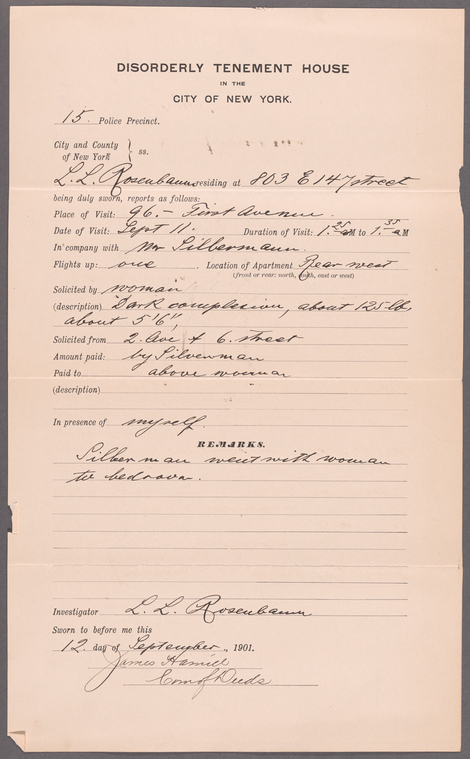 DISORDERLY TENEMENT HOUSE
IN THE
CITY OF NEW YORK.
15. Police Precinct.
City and County
of New York } ss.
L. L. Rosenbaum residing at 803 E 147 street
being duly sworn, reports as follows:
Place of Visit: 96.- First Avenue.
Date of Visit: Sept 11. Duration of Visit: 1.25 a M to 1.35 a M
In company with Mr Silbermann.
Flights up: one Location of Apartment Rear west
(front or rear: north, south, east or west)
Solicited by woman
(description) Dark complession, about 125 lb,
about 5'6",
Solicited from 2. Ave & 6. street
Amount paid: by Silverman
Paid to above woman
(description)
In presence of myself.
REMARKS.
Silberman went with woman
to bedroom.
Investigator L. L. Rosenbaum
Sworn to before me this
12. day of September, 1901.
James Hamill
Com of Deeds